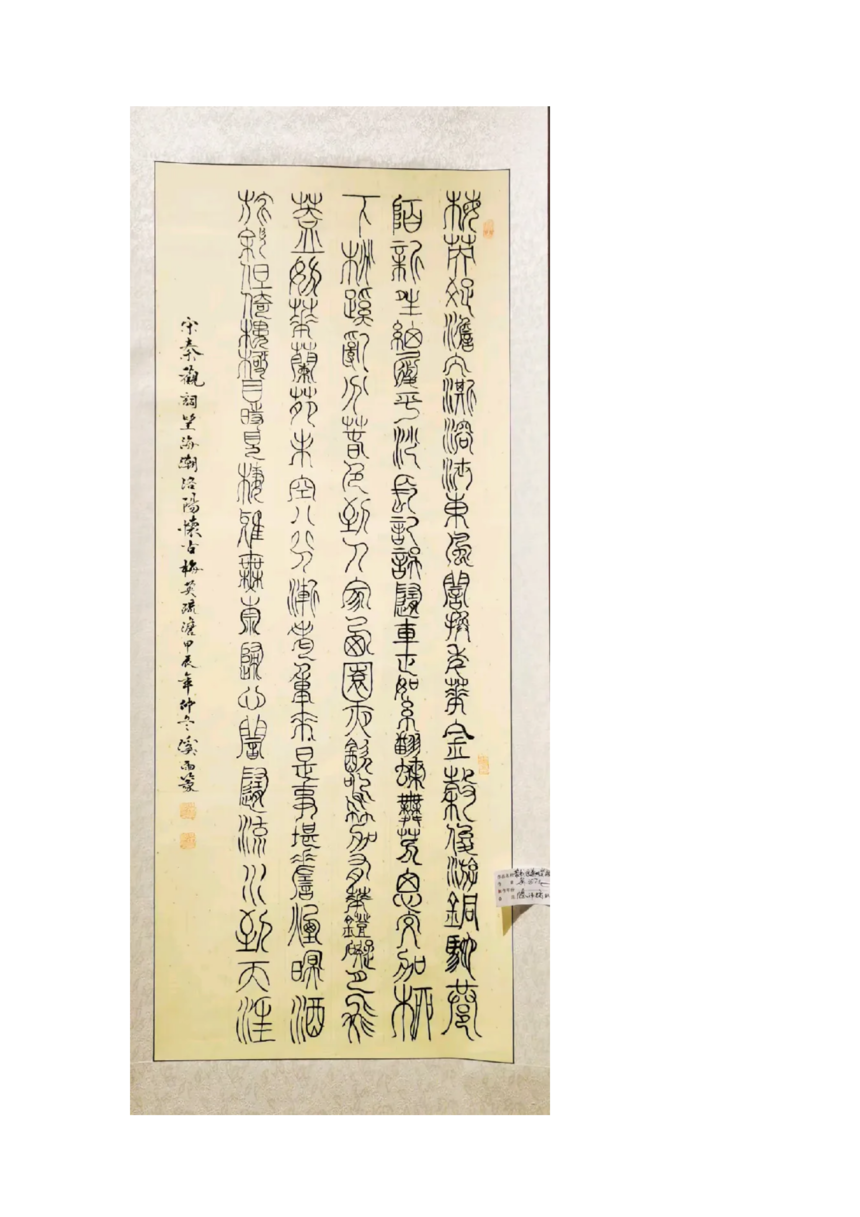 梅英疏澹冰澌溶泄東風闇換年華金穀俊游銅駝巷
陌新晴細履平沙長記誤隨車正絮翻蝶舞芳思交加柳
下桃蹊亂分春色到人家西園夜飲鳴笳有華鐙礙月飛
蓋妨華蘭苑未空行人漸老重來是事堪嗟煙暝酒
旂斜但倚樓極目時見棲鴉無奈歸心闇隨流水到天涯
宋秦觀詞望海潮洛陽懷古梅英疏澹甲辰年仲冬溪雨篆